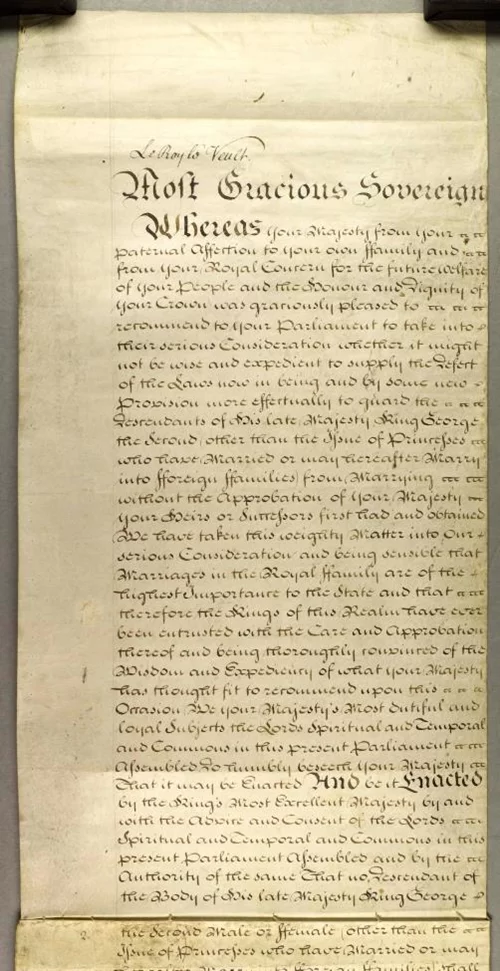 Le Roy le Veult.
Most Gracious Sovereign
Whereas your Majesty from your
paternal Affection to your own ffamily and
from your Royal Concern for the future Welfare
of your People and the Honour and Dignity of
your Crown was graciously pleased to
recommend to your Parliament to take into
their serious Consideration whether it might
not be wise and expedient to supply the Defect
of the Laws now in being and by some new
Provision more effectually to guard the
Descendants of His late Majesty King George
the Second (other than the Issue of Princesses
who have Married or may hereafter Marry
into fforeign ffamilies) from Marrying
without the Approbation of your Majesty
your Heirs or Successors first had and obtained
We have taken this weighty Matter into Our
serious Consideration and being sensible that
Marriages in the Royal ffamily are of the
highest Importance to the State and that
therefore the Kings of this Realm have ever
been entrusted with the Care and Approbation
thereof and being thoroughly convinced of the
Wisdom and Expediency of what your Majesty
has thought fit to recommend upon this
Occasion We your Majesty's Most dutiful and
loyal Subjects the Lords Spiritual and Temporal
and Commons in this present Parliament
Assembled Do humbly beseech your Majesty
That it may be Enacted And be it Enacted
by the King's Most Excellent Majesty by and
with the Advice and Consent of the Lords
Spiritual and Temporal and Commons in this
present Parliament Assembled and by the
Authority of the same That no Descendant of
the Body of His late Majesty King George
2. the Second Male or ffemale (other than the
Issue of Princesses who have Married or may